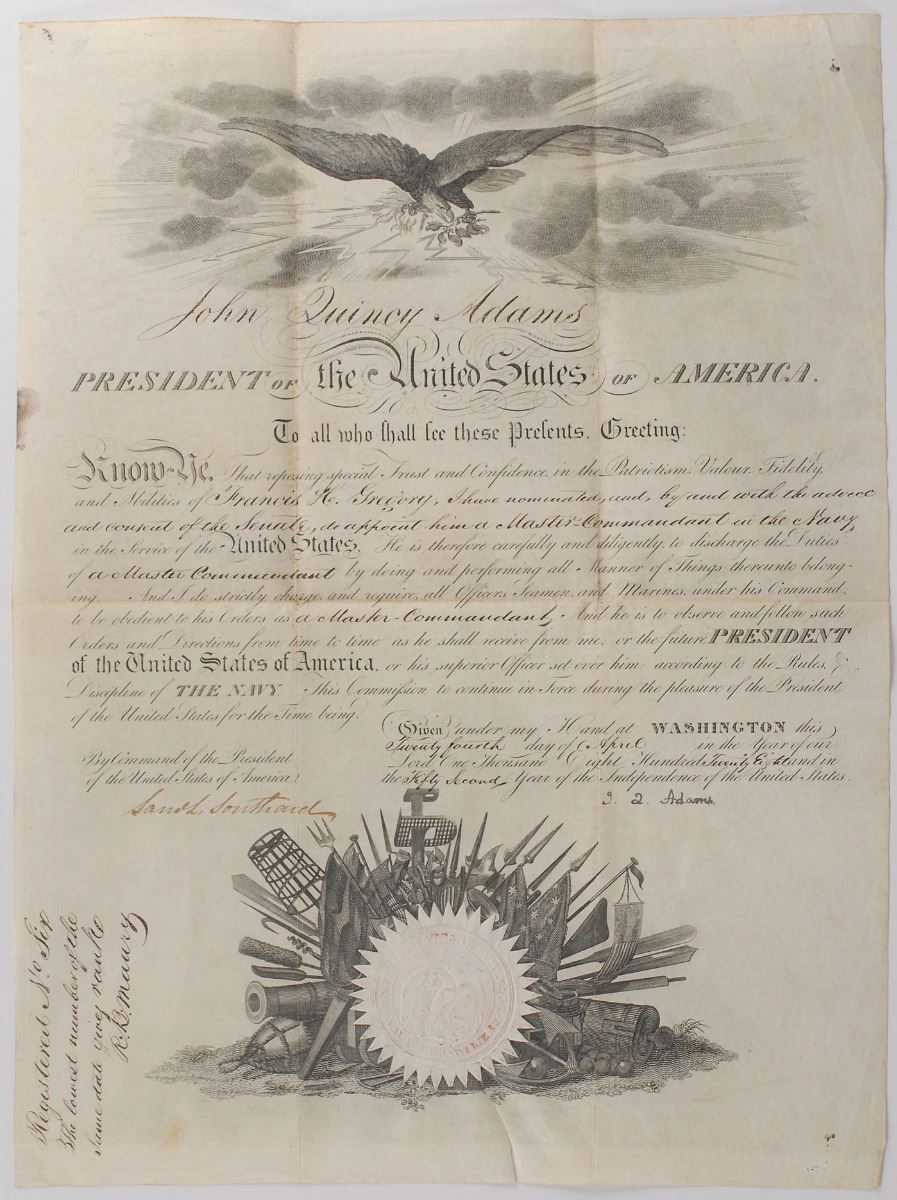 John Quincy Adams
PRESIDENT OF the United States OF AMERICA.
To all who shall see these Presents, Greeting:
Know Ye, That reposing special Trust and Confidence in the Patriotism, Valour, Fidelity,
and Abilities of Francis H. Gregory, I have nominated, and, by and with the advice
and consent of the Senate, do appoint him a Master Commandant in the Navy
in the Service of the United States. He is therefore carefully and diligently to discharge the Duties
of a Master Commandant by doing and performing all Manner of Things thereunto belong-
ing. And I do strictly charge and require all Officers Seamen and Marines under his Command
to be obedient to his Orders as a Master-Commandant, And he is to observe and follow such
Orders and Directions from time to time as he shall receive from me, or the future PRESIDENT
of the United States of America, or his superior Officer set over him according to the Rules, &
Discipline of THE NAVY This Commission to continue in Force during the pleasure of the President
of the United States for the Time being.
Given under my Hand at WASHINGTON this
Twenty fourth day of April in the Year of our
Lord One Thousand Eight Hundred Twenty Eight and in
the Fifty Second Year of the Independence of the United States.
By Command of the President
of the United States of America.
J. Q. Adams.
Saml L. Southard
Registered No. Six
The lowest number of the
same date giving rank